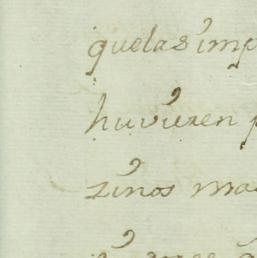 quelas imp
huvieren p
zinos ma